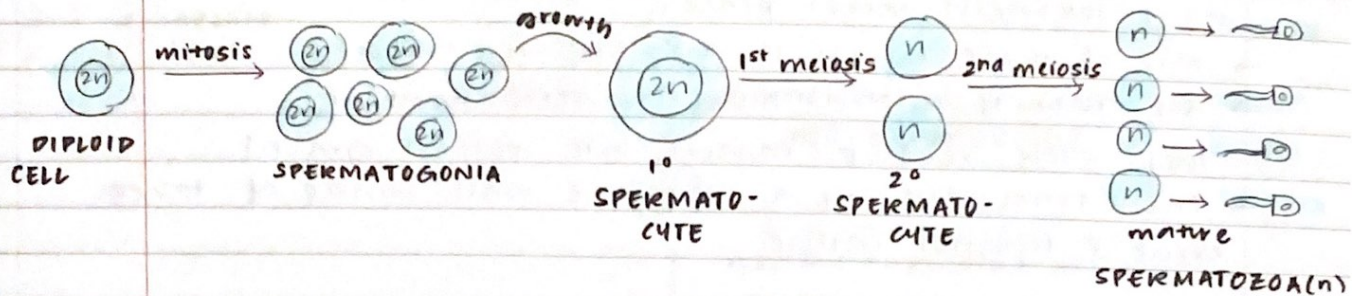 2n
DIPLOID
CELL
mitosis
2n 2n 2n
2n 2n 2n
SPERMATOGONIA
growth
2n
1°
SPERMATO-
CYTE
1st meiosis
n
n
2°
SPERMATO-
CYTE
2nd meiosis
n
n
n
n
mature
SPERMATOZOA(n)